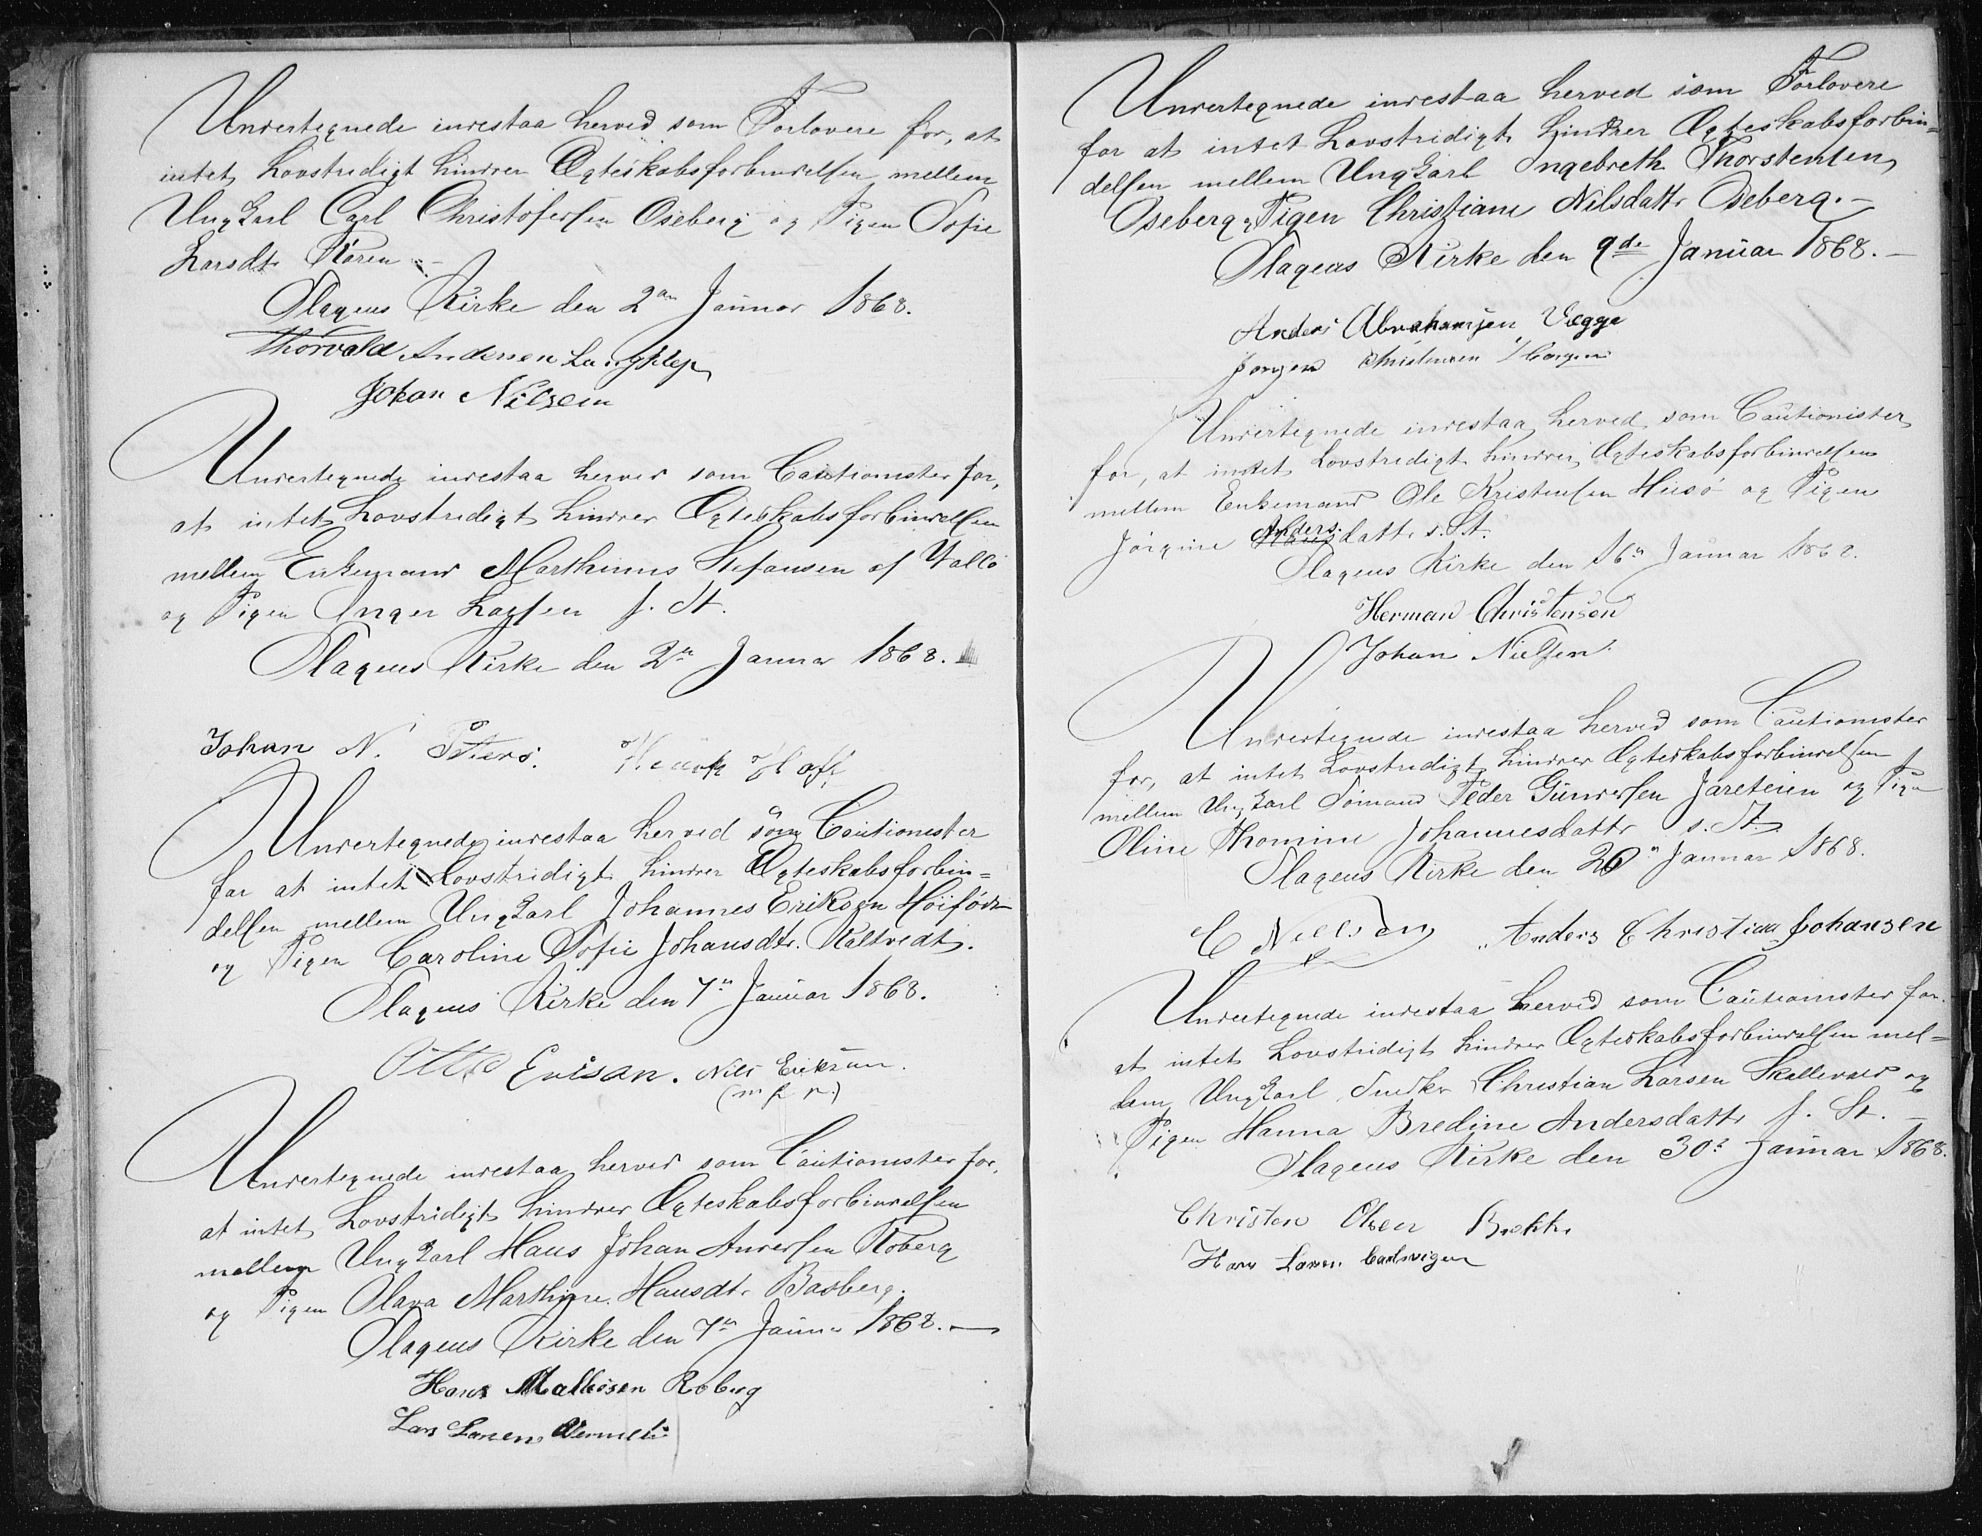 Undertegnede indestaa herved som Forlovere for, at
intet Lovstridigt hindrer Ægteskabsforbindelsen mellem
Ungkarl Carl Christofersen Oseberg og Pigen Sofie
Larsdt. Røren
Slagens Kirke den 2den Januar 1868.
Thorvald Andersen
Johan Nilsen
Undertegnede indestaa herved som Cautionister for,
at intet Lovstridigt hindrer Ægteskabsforbindelsen
mellem Enkemand Marthinus Stefansen af Vallö
og Pigen Inger Larsen f. St.
Slagens Kirke den 2den Januar 1868.
Johan N.
Undertegnede indestaa herved som Cautionister
for at intet Lovstridigt hindrer Ægteskabsforbin=
delsen mellem Ungkarl Johannes Eriksen
og Pigen Caroline Sofie Johansdtr. Kaltvedt.
Slagens Kirke den 7de Januar 1868.
Otto Erisan. Nils Eriksen.
(m. f. p.)
Undertegnede indestaa herved som Cautionister for,
at intet Lovstridigt hindrer Ægteskabsforbindelsen
mellem Ungkarl Hans Johan Andersen Roberg
og Pigen Olava Marthine Hansdt. Basberg.
Slagens Kirke den 7de Januar 1868.—
Hans Mathisen Roberg
Lars Larsen
Undertegnede indestaa herved som Forlovere
for at intet Lovstridigt hindrer Ægteskabsforbin=
delsen mellem Ungkarl Ingebreth Thorstensen
Oseberg og Pigen Christiane Nilsdatt. Oseberg.—
Slagens Kirke den 9de Januar 1868.—
Anders Abrahamsen Vegge
Jørgen Christensen
Undertegnede indestaa herved som Cautionister
for, at intet Lovstridigt hindrer Ægteskabsforbindelsen
mellem Enkemand Ole Kristensen Husö og Pigen
Jørgine Anders datt. s. St.
Slagens Kirke den 16de Januar 1868.
Herman Christensen
Johan Nielsen
Undertegnede indestaa herved som Cautionister
for, at intet Lovstridigt hindrer Ægteskabsforbindelsen
mellem Ungkarl Sömand Peder Gundersen Jareteien og Pigen
Oline Thomine Johannesdattr s. St.
Slagens Kirke den 20de Januar 1868.
C Nielsen Anders Christian Johansen
Undertegnede indestaa herved som Cautionister for,
at intet Lovstridigt hindrer Ægteskabsforbindelsen mel=
lem Ungkarl Snedker Christian Larsen Skallevold og
Pigen Hanna Bredine Andersdattr f. St.—
Slagens Kirke den 30te Januar 1868.
Christen Olsen Brekke
Hans Larsen